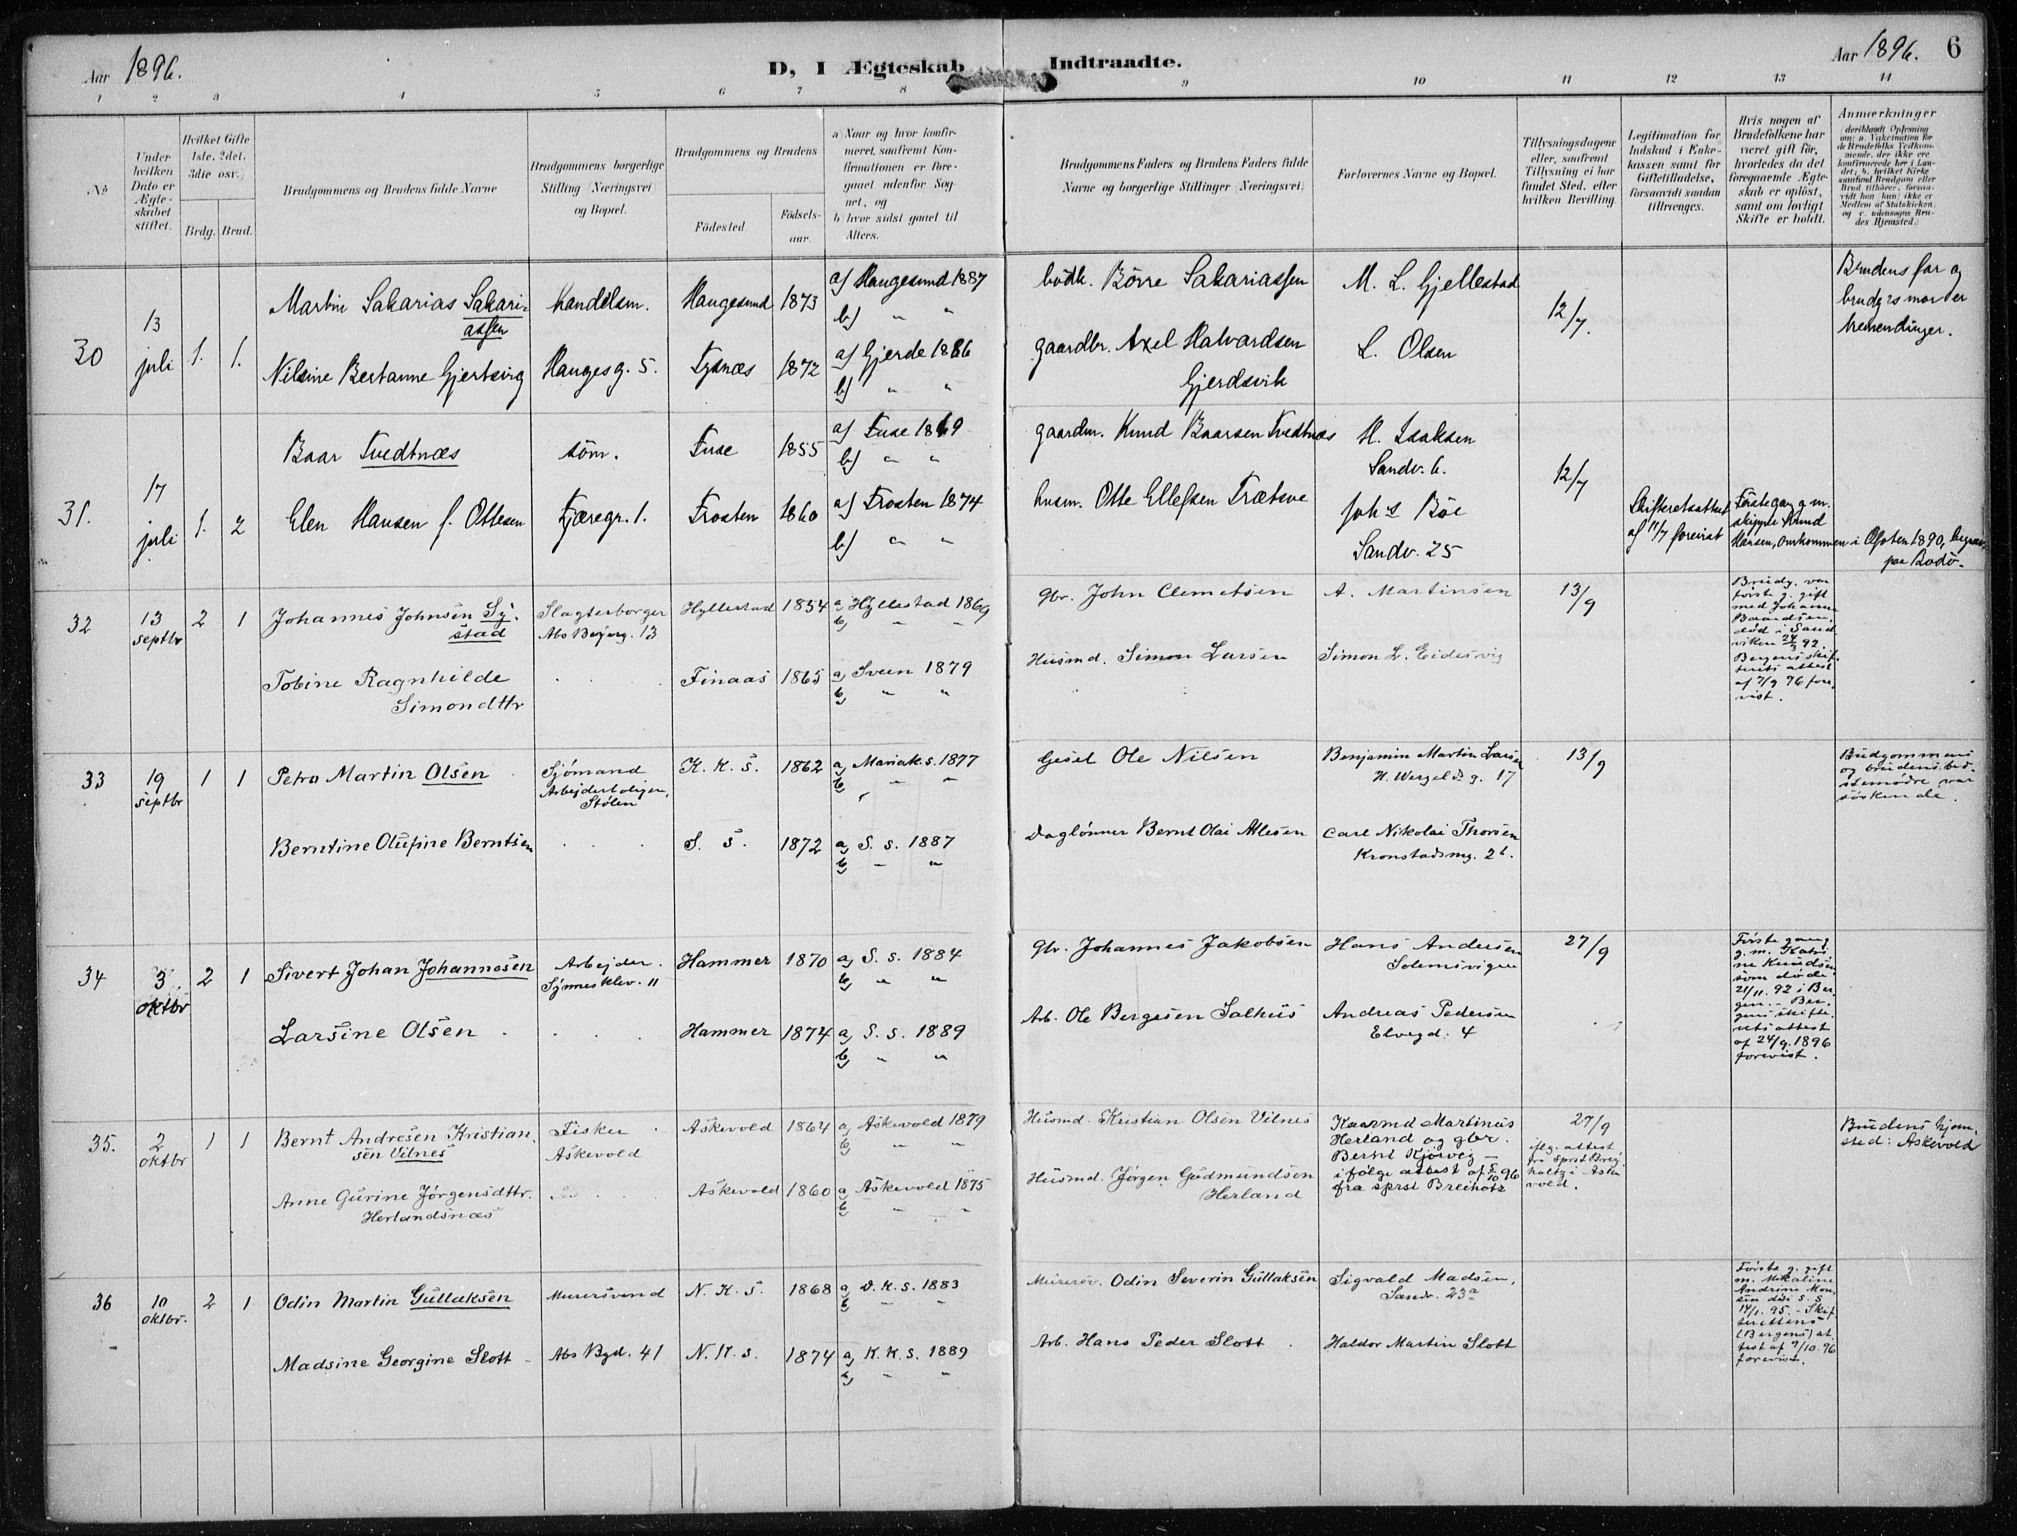 Aar 1896.
D, I Ægteskab Indtraadte.
Aar 1896. 6
1 2 3 4 5 6 7 8 9 10 11 12 13 14
No
Under hvilken Dato er Ægteskabet stiftet.
Hvilket Gifte 1ste, 2det, 3die osv.)
Brdg. Brud.
Brudgommens og Brudens fulde Navne
Brudgommens borgerlige Stilling (Næringsvei og Bopæl.
Brudgommens og Brudens
Fødested
Fødsels-aar.
a) Naar og hvor konfirmeret, saafremt Konfirmationen er foregaaet udenfor Sognet, og
b) hvor sidst gaaet til Alters.
Brudgommens Faders og Brudens Faders fulde Navne og borgerlige Stillinger (Næringsvei)
Forlovernes Navne og Bopæl.
Tillysningsdagene eller, saafremt Tillysning ei har fundet Sted, efter hvilken Bevilling.
Legitimation for Indskud i Enkekassen samt for Giftetilladelse, forsaavidt saadan tiltrænges.
Hvis nogen af Brudefolkene har været gift før, hvorledes da det foregaaende Ægteskab er opløst, samt om lovligt Skifte er holdt.
Anmærkninger
(deriblandt Oplysning om: a. Vakcination for de Brudefolks Vedkommende, der ikke ere konfirmerede her i Landet; b. hvilket Kirkesamfund Brudgom eller Brud tilhører, forsaavidt han (hun) ikke er Medlem af Statskirken, og c. udensogns Brudes Hjemsted.)
30
13 juli
1. 1.
Martin Sakarias Sakariassen
Handelsm.
Haugesund 1873
a) Haugesund 1887
b) " "
bødk. Børre Sakariassen
M. L. Gjellestad
12/7.
Brudens far og brudgs mor er tremendinger.
Nilsine Bertanne Gjertsvig
Hauges g. 5.
Tysnæs 1872
a) Gjerde 1886
b) " "
gaardbr. Axel Halvardsen Gjerdsvik
L. Olsen
31.
17 juli
1. 2
Baar Tvedtnæs
søm.
Fuse 1855
a) Fuse 1869
b) " "
gaardm. Knud Baarsen Tvedtnæs
H. Isaksen
Sandv. 6.
12/7
Elen Hansen f. Ottesen
Fjæregr. 1.
Frosten 1860
a) Frosten 1874
b) " "
husm. Otte Ellefsen Trætsve
Johs Bøe
Sandv. 25
Skifteretsattest af 11/7 forevist
Første gang g. m. skipper Knud Hansen, omkommen i Ofoten 1890, begrav. paa Bodø.
32
13 septbr
2 1
Johannes Johnsen Systad
Slagterborger
Abs Bejerg. 13
Hyllestad 1854
a) Hyllestad 1869
b) " "
gbr. John Clemetsen
A. Martinsen
13/9
Brudg. var første g. gift med Johanne Baardsen, død i Sandviken 24/3 92. Bergens skifterets attest af 7/9 96 forevist.
Tobine Ragnhilde Simondttr
Finaas 1865
a) Sveen 1879
b) " "
Husmd. Simon Larsen
Simon L. Eidesvig
33
19 septbr
1 1
Petro Martin Olsen
Sjømand
Arbejderboligen, Stølen
K. K. S. 1862
a) Mariak. s. 1877
b) " "
Gesel Ole Nilsen
Benjamin Martin Larsen
H. Wergelds g. 17
13/9
Brudgommens og brudens bedstemødre var søskende.
Berntine Olufine Berntsen
S. S. 1872
a) S. s. 1887
b) " "
Daglønner Bernt Olai Atlesen
Carl Nikolai Thorsen
Kronstadsmg. 2b.
34
3 oktbr
2 1
Sivert Johan Johannesen
Arbejder.
Synnesklev. 11
Hammer 1870
a) S. s. 1884
b) " "
gbr. Johannes Jakobsen
Hans Andersen
Solemsvigen
27/9
Første gang g. m. Katrine Knudsen som døde 21/11. 92 i Bergen. - Bergens skifterets attest af 24/9. 1896 forevist.
Larsine Olsen
Hammer 1874
a) S. s. 1889
b) " "
Arb. Ole Bergesen Salhus
Andreas Pedersen
Elvegd. 4
35.
2 oktbr
1 1
Bernt Andresen Kristiansen Vilnes
Fisker
Askevold
Askevold 1864
a) Askevold 1879
b) " "
Husmd. Kristian Olsen Vilnes
Kaarmd Martinus Herland og gbr. Bernt Kjørveg - ifølge attest af 5/10 96 fra sprst Breiholtz
27/9
iflg. attest fra Sprst Breiholtz i Askevold.
Brudens hjemsted: Askevold
Anne Gurine Jørgensdttr. Herlandsnæs
Askevold 1860
a) Askevold 1875
b) " "
Husmd. Jørgen Gudmundsen Herland
36
10 oktbr.
2 1
Odin Martin Gullaksen
Murersvend
N. K. S. 1868
a) D. K. S. 1883
b) " "
Murersv. Odin Severin Gullaksen
Sigvald Madsen,
Sandv. 23a
Første g. gift m. Mikaline Andrine Monsen død S. S. 14/1. 95. - Skifterettens (Bergens) attest af 9/10. 96 forevist.
Madsine Georgine Slott
Abs Bgd. 41
N. K. s. 1874
a) K. K. S. 1889
b) " "
Arb. Hans Peder Slott
Haldor Martin Slott